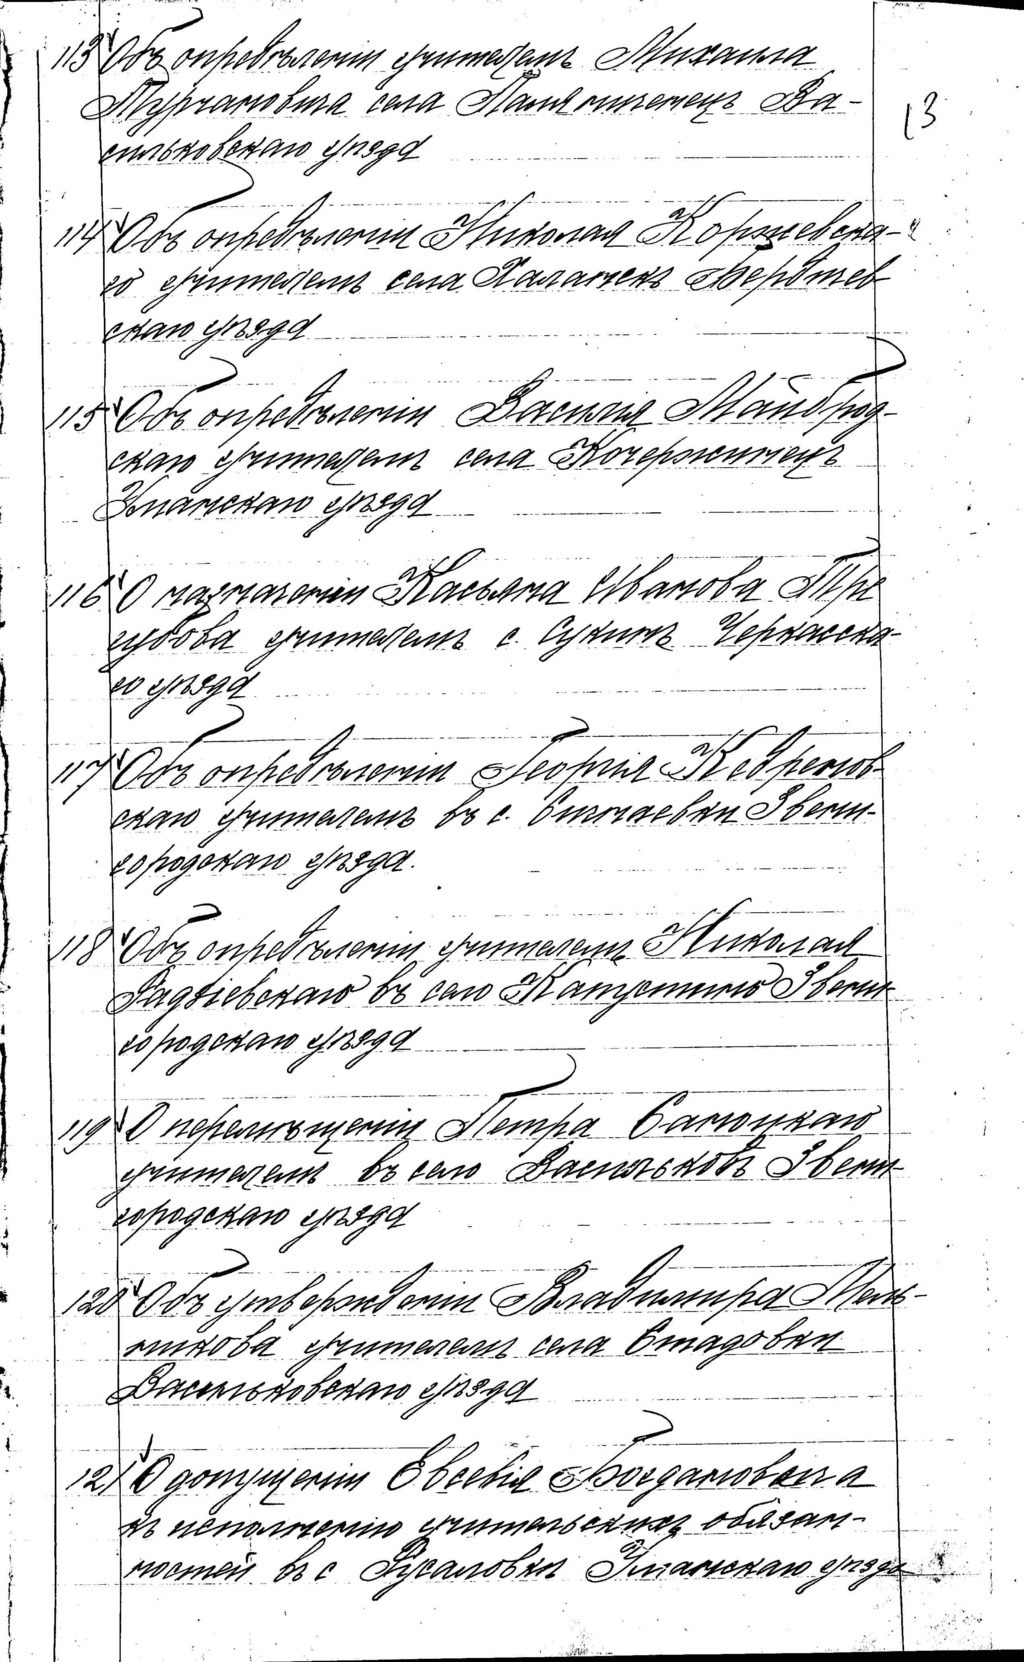 113 Объ опредѣленіи учителемъ Михаила
Турчановича села Паляниченецъ Ва-
сильковскаго уѣзда
13
114 Объ опредѣленіи Николая Коржевска-
го учителемъ села Халаимскъ Бердичев
скаго уѣзда
115 Объ опредѣленіи Василія Майброд-
скаго учителемъ села Кочержинецъ
Уманскаго уѣзда
116 О назначеніи Касьяна Иванова Три
губова учителемъ с. Сукинъ Черкасска-
го уѣзда
117 Объ опредѣленіи Георгія Кедринов-
скаго учителемъ въ с. Звени-
городскаго уѣзда.
118 Объ опредѣленіи учителемъ Николая
Радзіевскаго въ село Капустино Звени
городскаго уѣзда
119 О перемѣщеніи Петра Саноцкаго
учителемъ въ село Васильковъ Звени
городскаго уѣзда
120 Объ утвержденіи Владиміра Мель-
никова учителемъ села Стадовки
Васильковскаго уѣзда
121 О допущеніи Евсевія Богдановича
къ исполненію учительскихъ обязан-
ностей въ с Русаловки Уманскаго уѣзда